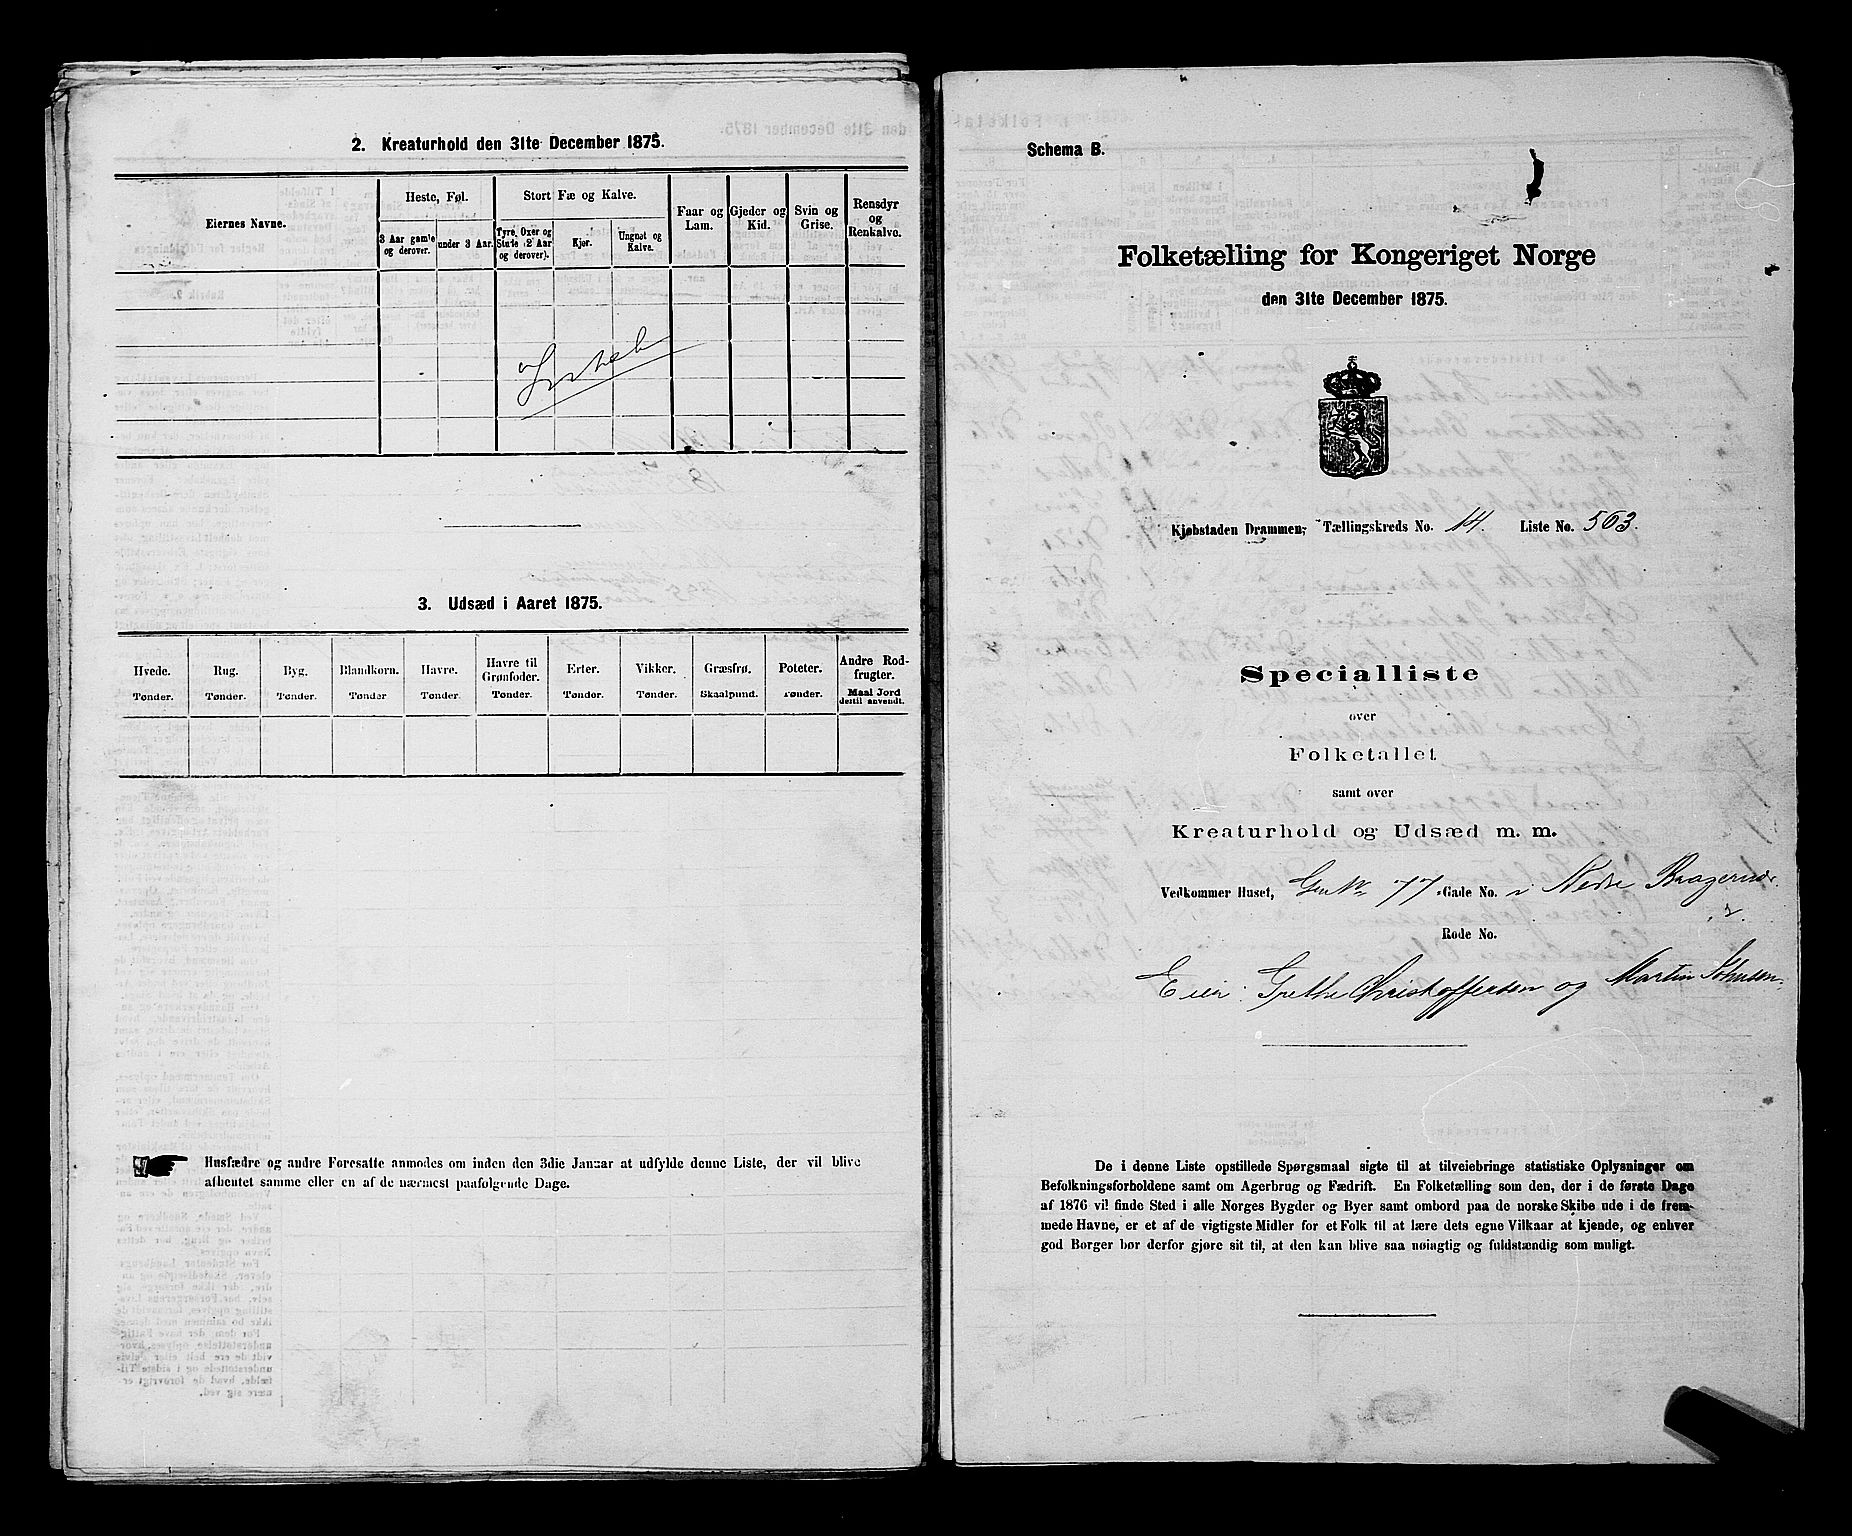 2. Kreaturhold den 31te December 1875.
Eiernes Navne.
Heste, Føl.
Stort Fæ og Kalve.
Faar og Lam.
Gjeder og Kid.
Svin og Grise.
Rensdyr og Renkalve.
3 Aar gamle og derover.
under 3 Aar.
Tyre, Oxer og Stude (2 Aar og derover).
Kjør.
Ungnøt og Kalve.
3. Udsæd i Aaret 1875.
Hvede. Rug. Byg. Blandkorn. Havre. Havre til Grønfoder. Erter. Vikker. Græsfrø. Poteter. Andre Rodfrugter.
Tønder. Tønder. Tønder. Tønder Tønder. Tønder. Tønder. Tønder. Skaalpund. Tønder. Maal Jord dertil anvendt.
Husfædre og andre Foresatte anmodes om inden den 3die Januar at udfylde denne Liste, der vil blive
afhentet samme eller en af de nærmest paafølgende Dage.
Schema B.
Folketælling for Kongeriget Norge
den 31te December 1875.
Kjøbstaden Drammen, Tællingskreds No. 14. Liste No. 563.
Specialliste
over
Folketallet
samt over
Kreaturhold og Udsæd m. m.
Vedkommer Huset, 77 Gade No. i Nedre Bragernæs
Rode No.
Eier: Grethe Christoffersen og Martin Johnsen.
De i denne Liste opstillede Spørgsmaal sigte til at tilveiebringe statistiske Oplysninger om
Befolkningsforholdene samt om Agerbrug og Fædrift. En Folketælling som den, der i de første Dage
af 1876 vil finde Sted i alle Norges Bygder og Byer samt ombord paa de norske Skibe ude i de frem-
mede Havne, er et af de vigtigste Midler for et Folk til at lære dets egne Vilkaar at kjende, og enhver
god Borger bør derfor gjøre sit til, at den kan blive saa nøiagtig og fuldstændig som muligt.